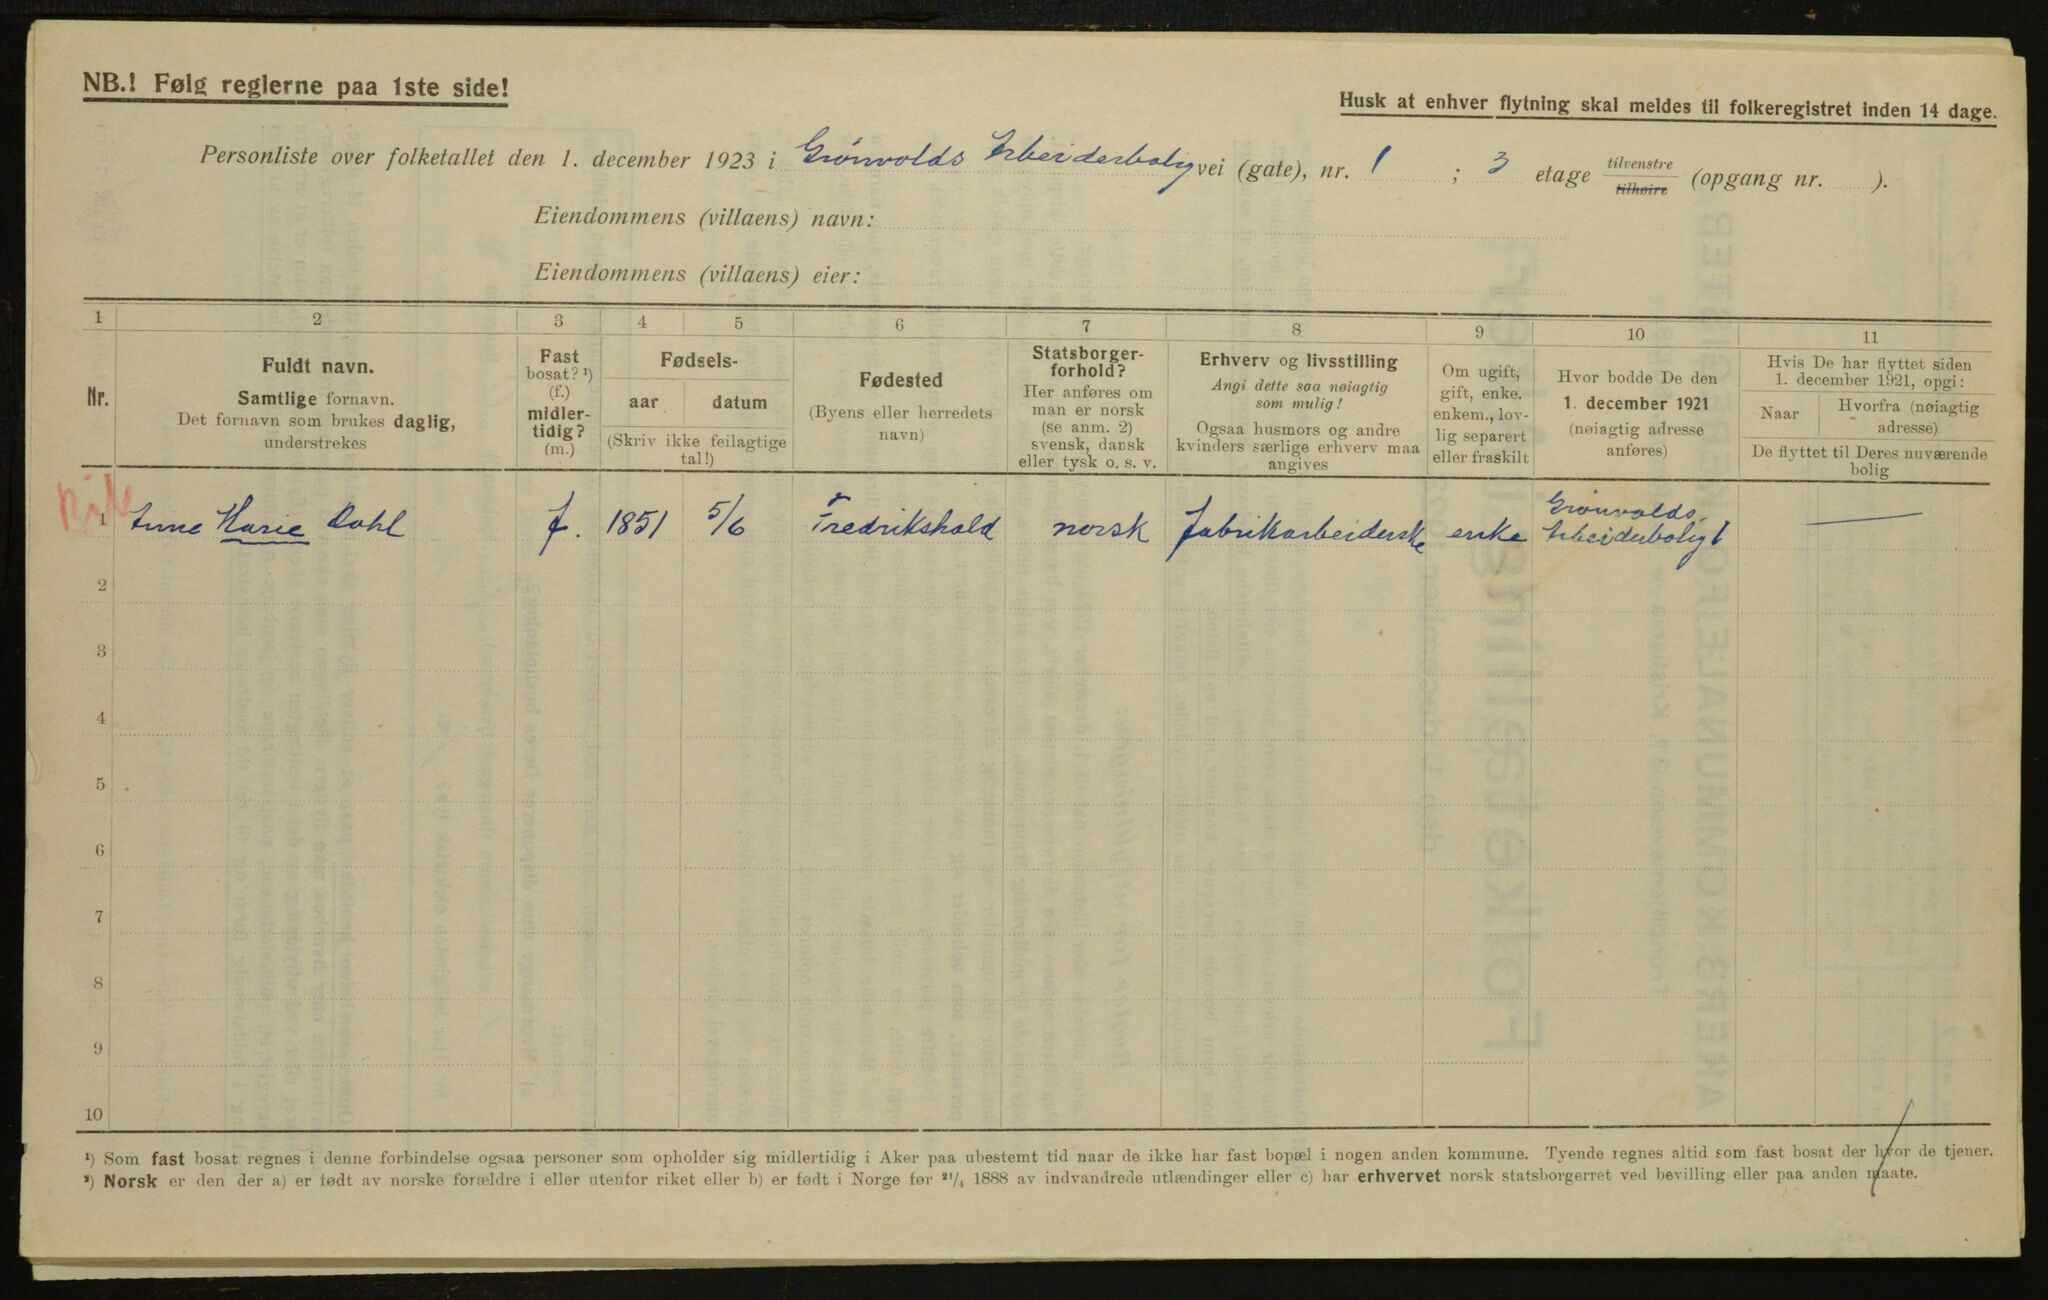 NB.! Følg reglerne paa 1ste side!
Husk at enhver flytning skal meldes til folkeregistret inden 14 dage.
Personliste over folketallet den 1. december 1923 i Grönvolds Arbeiderbolig vei (gate), nr. 1 ; 3 etage tilvenstre tilhøire (opgang nr. ).
Eiendommens (villaens) navn:
Eiendommens (villaens) eier:
1 2 3 4 5 6 7 8 9 10 11
Nr.
Fuldt navn.
Samtlige fornavn.
Det fornavn som brukes daglig,
understrekes
Fast
bosat? ¹)
(f.)
midler-
tidig?
(m.)
Fødsels-
aar datum
(Skriv ikke feilagtige
tal!)
Fødested
(Byens eller herredets
navn)
Statsborger-
forhold?
Her anføres om
man er norsk
(se anm. 2)
svensk, dansk
eller tysk o. s. v.
Erhverv og livsstilling
Angi dette saa nøiagtig
som mulig!
Ogsaa husmors og andre
kvinders særlige erhverv maa
angives
Om ugift,
gift, enke.
enkem., lov-
lig separert
eller fraskilt
Hvor bodde De den
1. december 1921
(nøiagtig adresse
anføres)
Hvis De har flyttet siden
1. december 1921, opgi:
Naar
Hvorfra (nøiagtig
adresse)
De flyttet til Deres nuværende
bolig
1 Anne Marie Dahl f. 1851 5/6 Fredrikshald norsk fabrikarbeiderske enke Grönvolds Arbeiderbolig 1 —
2
3
4
5
6
7
8
9
10
¹) Som fast bosat regnes i denne forbindelse ogsaa personer som opholder sig midlertidig i Aker paa ubestemt tid naar de ikke har fast bopæl i nogen anden kommune. Tyende regnes altid som fast bosat der hvor de tjener.
²) Norsk er den der a) er født av norske forældre i eller utenfor riket eller b) er født i Norge før ²¹/₄ 1888 av indvandrede utlændinger eller c) har erhvervet norsk statsborgerret ved bevilling eller paa anden maate.